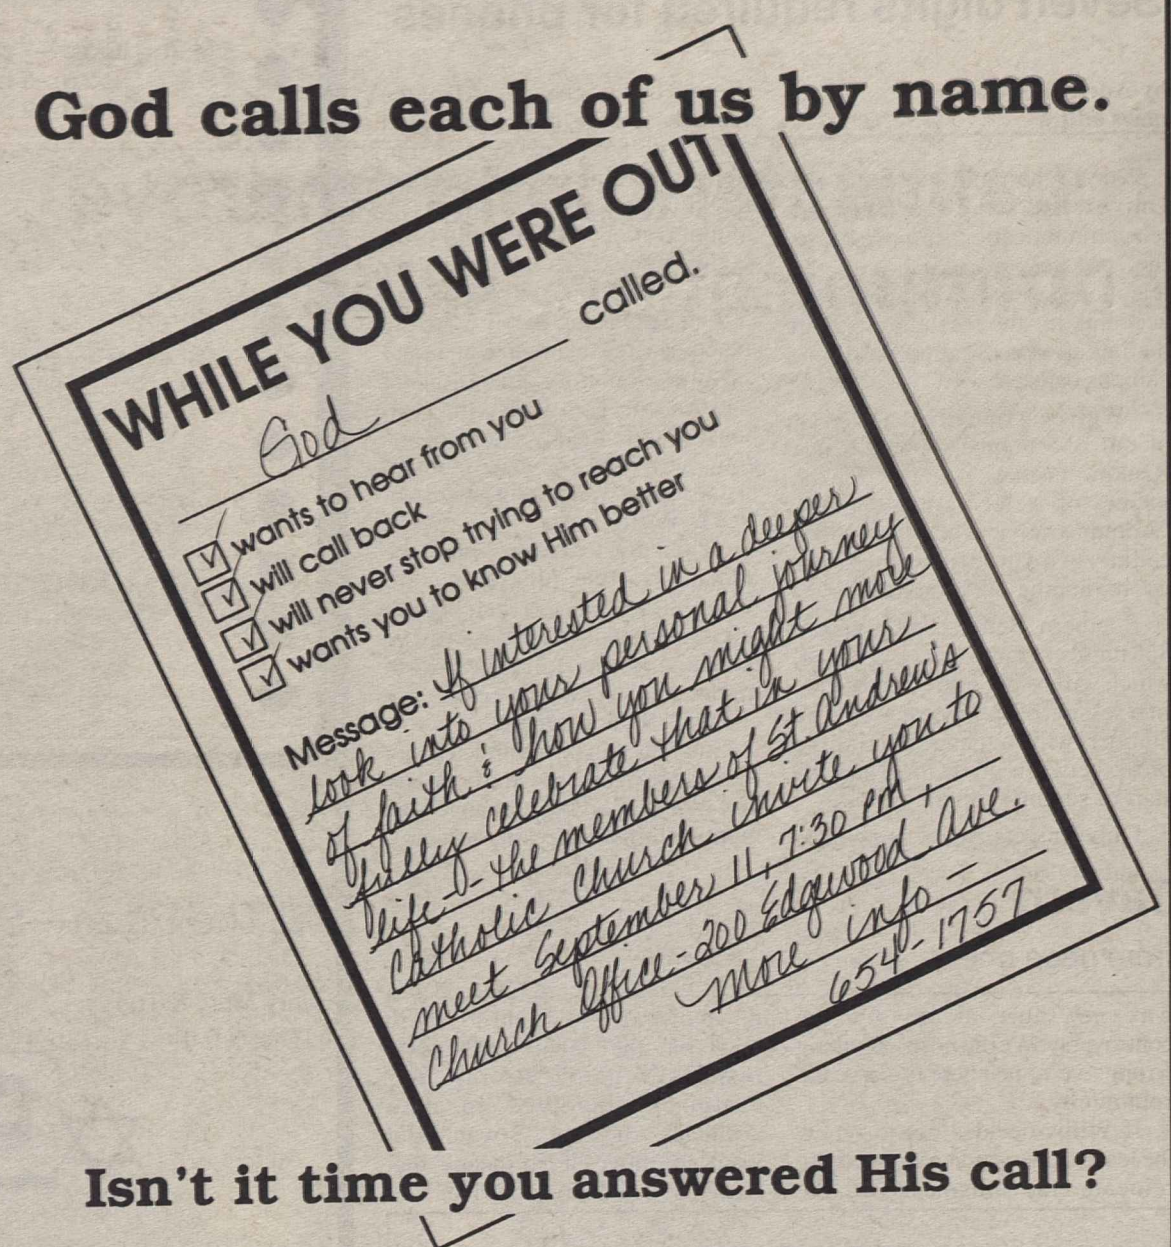 God calls each of us by name.
WHILE YOU WERE OUT
God called.
wants to hear from you
will call back
will never stop trying to reach you
wants you to know Him better
Message: If interested in a deeper
look into your personal journey
of faith & how you might more
fully celebrate that in your
life - the members of St. Andrew's
Catholic Church invite you to
meet September 11, 7:30 pm,
Church Office - 200 Edgewood Ave.
More info -
654-1757
Isn't it time you answered His call?